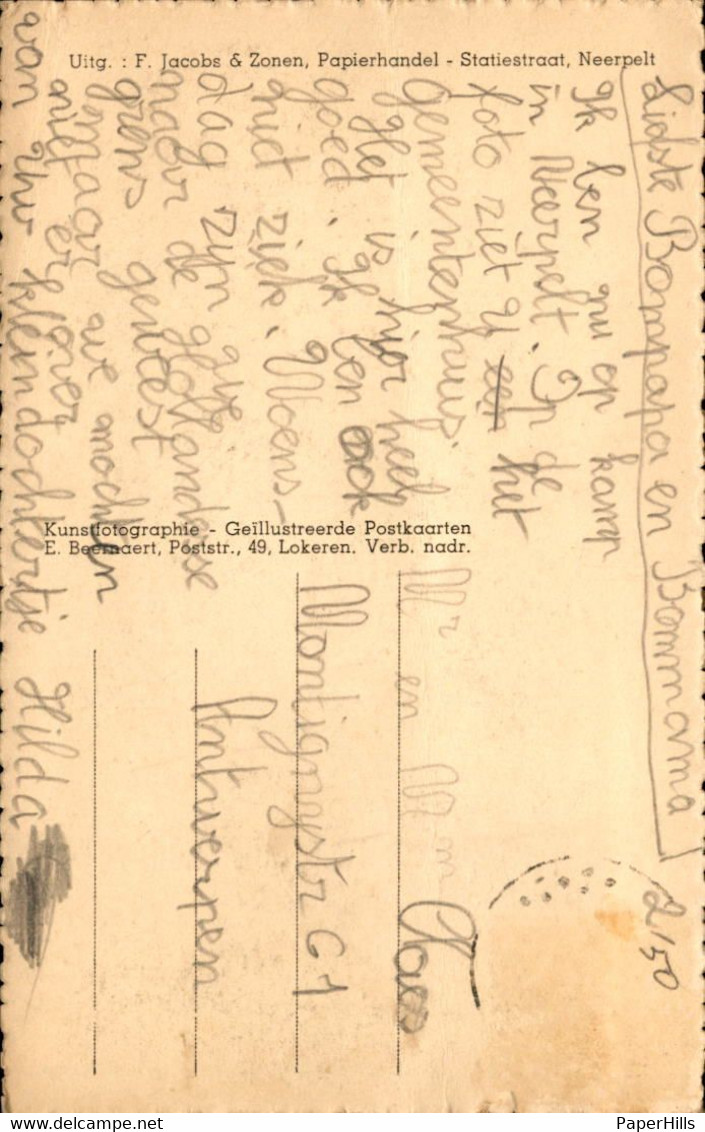 Uitg. : F. Jacobs & Zonen, Papierhandel - Statiestraat, Neerpelt
Liefste Bompapa en Bommama
Ik ben nu op kamp
in Neerpelt. Op de
foto ziet U een het
Gemeentenhuis.
Het is hier heel
goed. Ik ben ook
niet ziek. Woens-
dag zijn we
naar de Hollandse
grens geweest
maar we mochten
niet er over
van Uw kleindochtertje Hilda
Kunstfotographie - Geïllustreerde Postkaarten
E. Beernaert, Poststr., 49, Lokeren. Verb. nadr.
Mr en Mm
Claes
Montignystr 61
Antwerpen
2'50
PaperHills